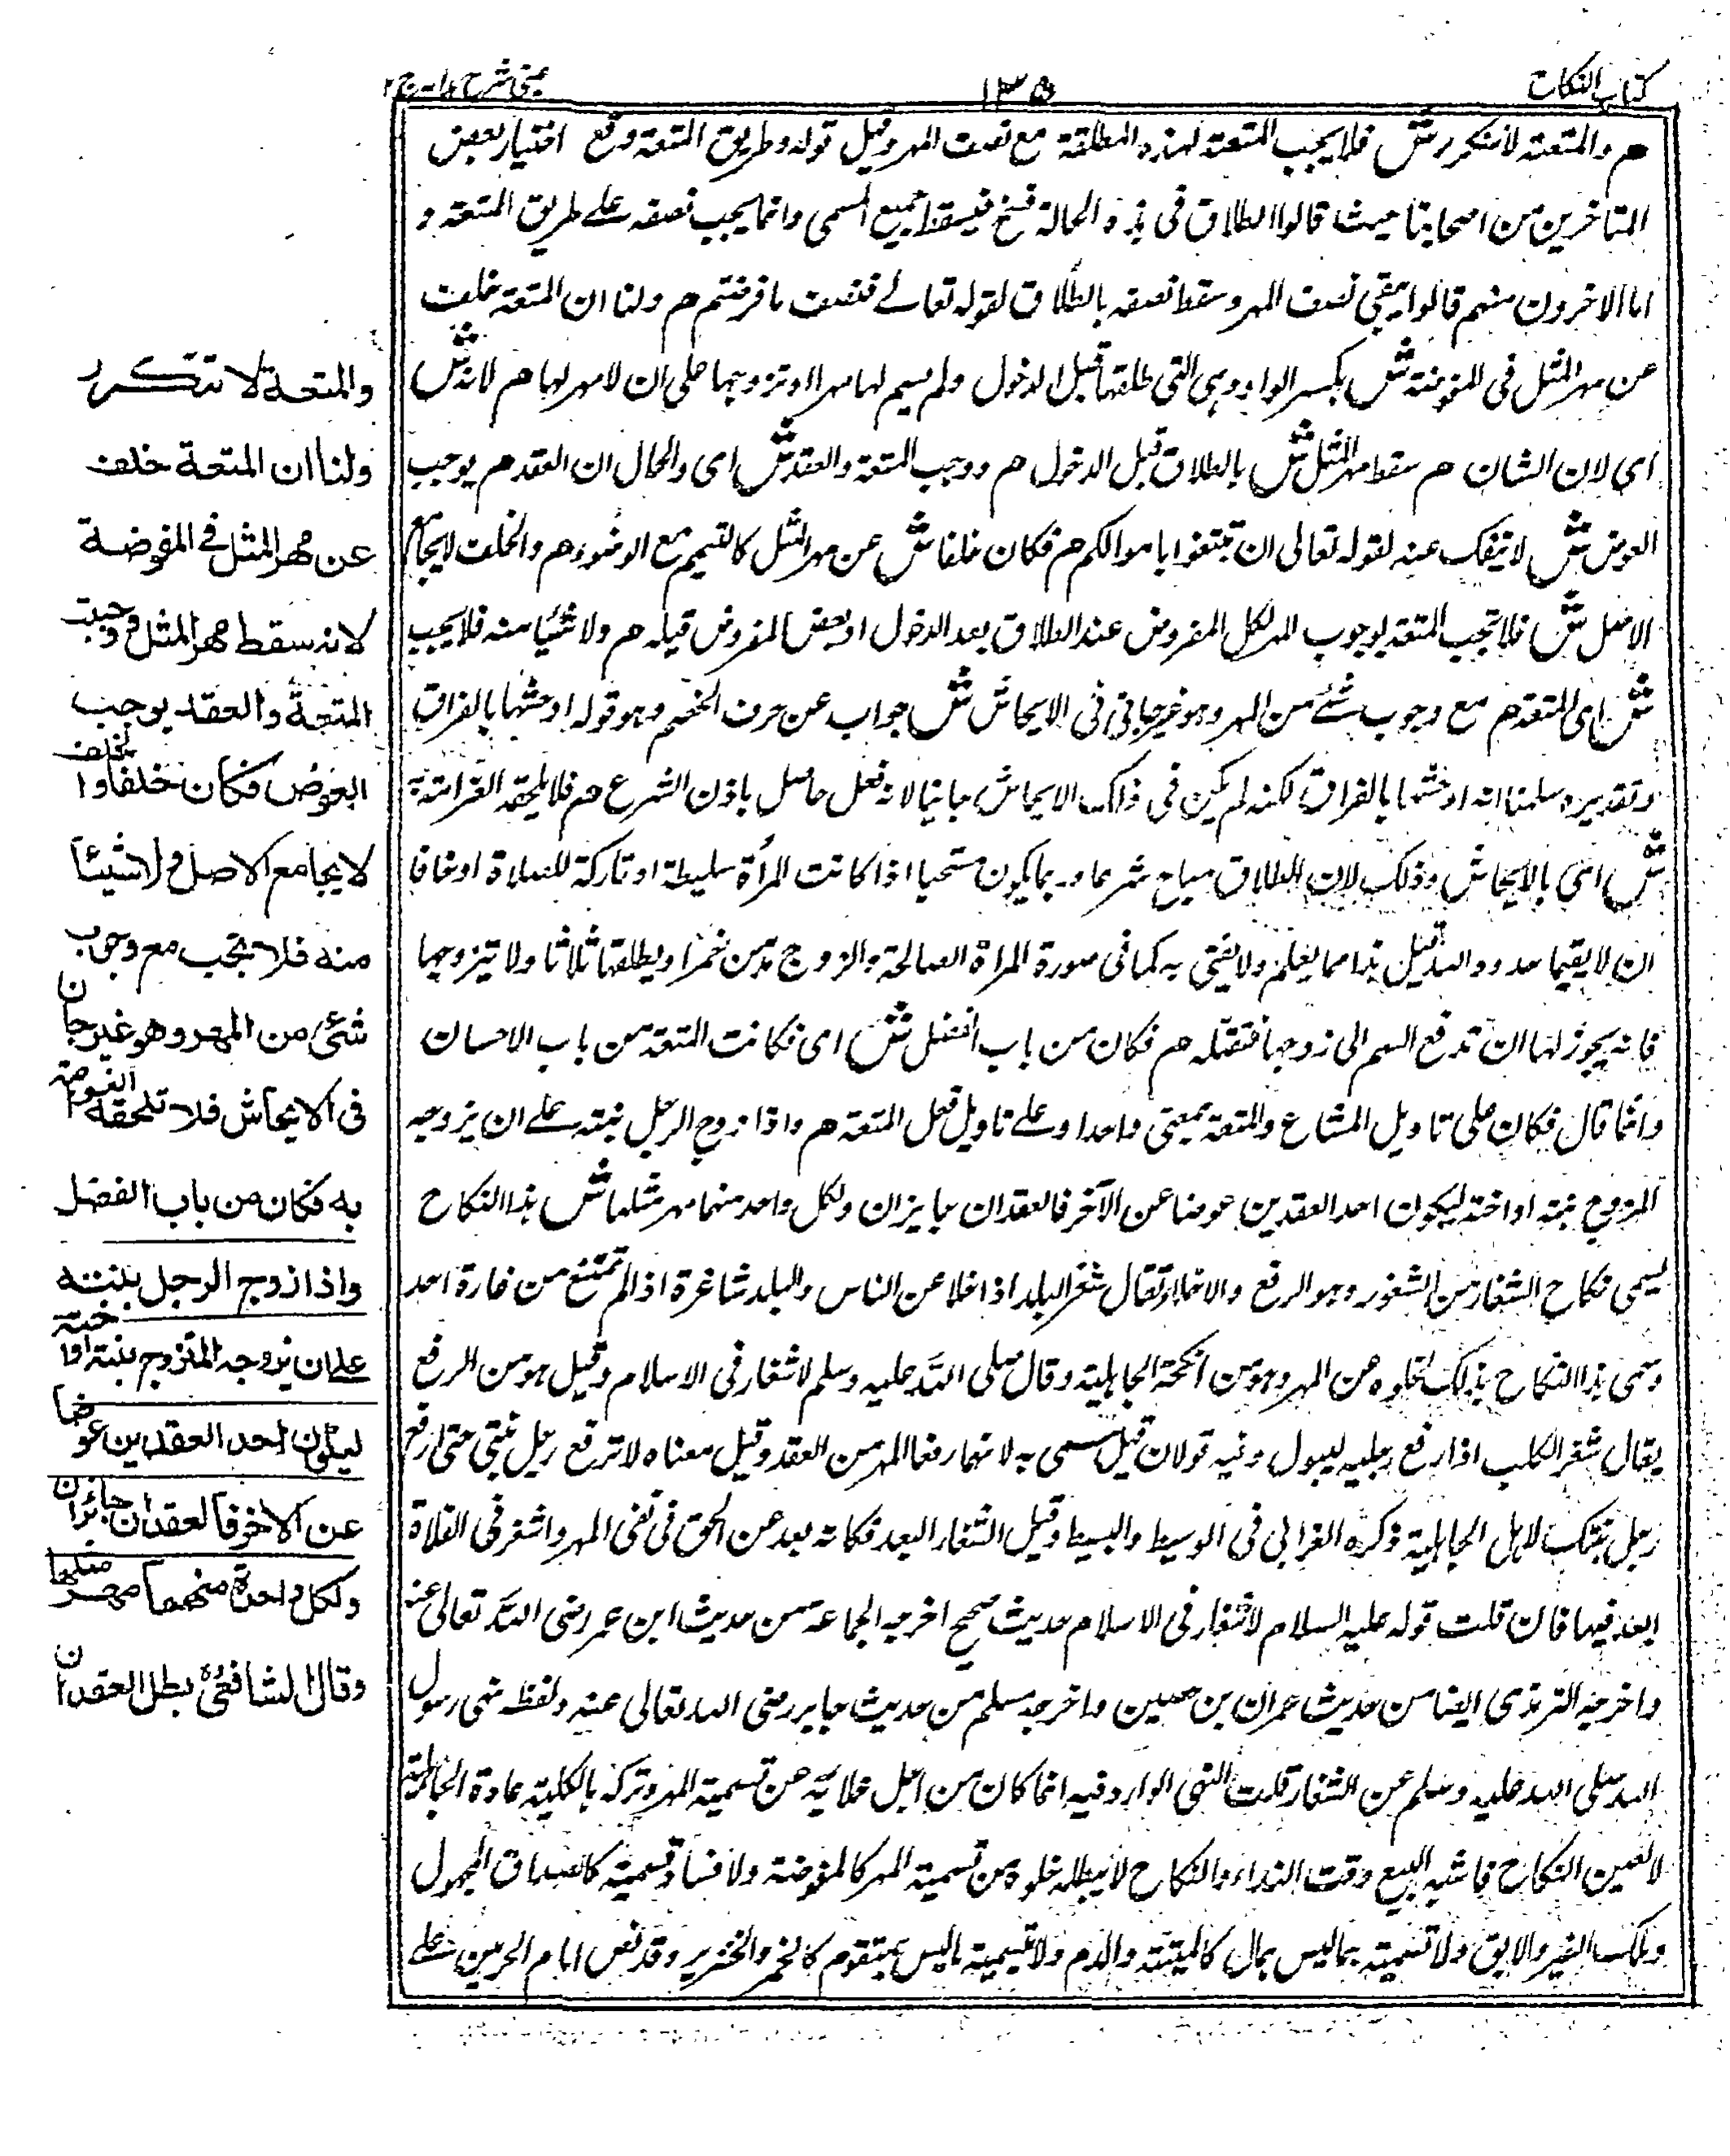 كتاب النكاح
١٣٥
عینی شرح ہدایہ ج ٢
م والمتعة لا تتكرر ش فلا يجب المتعة لهذه المطلقة مع نصف المهر وقيل قوله وطريق المتعة وقع اختيار بعض
المتأخرين من اصحابنا حيث قالوا الطلاق فى هذه الحالة فسخ فيسقط جميع المسمى وانما يجب نصفه على طريق المتعة و
اما الاخرون منهم قالوا يبقى نصف المهر وسقط نصفه بالطلاق لقوله تعالے فنصف ما فرضتم م ولنا ان المتعة خلف
عن مهر المثل فى المفوضة ش بكسر الواو وهى التى طلقها قبل الدخول ولم يسم لها مهرا او تزوجها على ان لا مهر لها م لانه ش
اى لان الشان م سقط مهر المثل ش بالطلاق قبل الدخول م ووجب المتعة والعقد ش اى والحال ان العقد م يوجب
العوض ش لا ينفك عنه لقوله تعالى ان تبتغوا باموالكم م فكان خلفا ش عن مهر المثل كالتيمم مع الوضوء م والخلف لا يجامع
الاصل ش فلا تجب المتعة لوجوب المهر لكل المفروض عند الطلاق بعد الدخول او بعض المفروض قبله م ولا شيئا منه فلا يجب
ش اى المتعة م مع وجوب شئے من المهر وهو غير جانى فى الايحاش ش جواب عن حرف الخصم وهو قوله اوحشها بالفراق
وتقديره سلمنا انه اوحشها بالفراق لكنه لم يكن فى ذلك الايحاش جانيا لانه فعل حاصل باذن الشرع م فلا يلحقه الغرامة
ش اى بالايحاش وذلك لان الطلاق مباح شرعا وربما يكون مستحبا اذا كانت المرأة سليطة او تاركة للصلاة او خافا
ان لا يقيما حدود الله قيل هذا مما يعلم ولا يفتى به كما فى صورة المرأة الصالحة والزوج مدمن خمرا ويطلقها ثلاثا ولا تيزوجها
فانه يجوز لها ان تدفع السم الى زوجها فتقتله م فكان من باب الفضل ش اى فكانت المتعة من باب الاحسان
وانما قال فكان على تاويل المشاع والمتعة بمعنى واحدا وعلے تاويل فعل المتعة م واذا زوج الرجل بنته علے ان يزوجه
المزوج بنته او اخته ليكون احد العقدين عوضا عن الآخر فالعقدان جايزان ولكل واحد منهما مهر مثلها ش هذا النكاح
يسمى نكاح الشغار من الشغور وهو الرفع والاخلاء يقال شغر البلد اذا خلا عن الناس والبلد شاغرة اذا لم تمتنع من غارة احد
وسمى هذا النكاح بذلك لخلوه عن المهر وهو من انكحة الجاهلية وقال صلى الله عليه وسلم لا شغار فى الاسلام وقيل هو من الرفع
يقال شغر الكلب اذا رفع رجليه ليبول وفيه قولان قيل سمى به لانهما رفعا المهر من العقد وقيل معناه لا ترفع رجل بنتى حتى ارفع
رجل بنتك لاهل الجاهلية ذكره الغزالى فى الوسيط والبسيط وقيل الشغار البعد فكانه بعد عن الحق فى نفى المهر واشغر فى الفلاة
ابعد فيها فان قلت قوله عليه السلام لا شغار فى الاسلام حديث صحيح اخرجه الجماعة من حديث ابن عمر رضى الله تعالى عنه
واخرجه الترمذى ايضا من حديث عمران بن حصين واخرجه مسلم من حديث جابر رضى الله تعالى عنه ولفظه نهى رسول
الله صلى الله عليه وسلم عن الشغار قلت النهى الوارد فيه انما كان من اجل خلائه عن تسمية المهر وتركه بالكلية عادة الجاهلية
لا لعين النكاح فاشبه البيع وقت النداء والنكاح لا يبطله خلوه من تسمية المهر كالمفوضة ولا فساد تسمية كالصداق المجهول
وملك الغير والابق ولا تسمية بما ليس بمال كالميتة والدم ولا تسمية ما ليس بمتقوم كالخمر والخنزير وقد نص امام الحرمين علے
والمتعة لا تتكرر
ولنا ان المتعة خلف
عن مهر المثل فے المفوضة
لانه سقط مهر المثل ووجبت
المتعة والعقد يوجب
العوض فكان خلفا والخلف
لا يجامع الاصل ولا شيئاً
منه فلا تجب مع وجوب
شئ من المهر وهو غير جان
فى الايحاش فلا تلحقه الغرامة
به فكان من باب الفضل
واذا زوج الرجل بنته
علے ان يزوجه المتزوج بنته او اخته
ليكون احد العقدين عوضا
عن الاخر فالعقدان جائزان
ولكل واحدة منهما مهر مثلها
وقال الشافعیؒ بطل العقدان